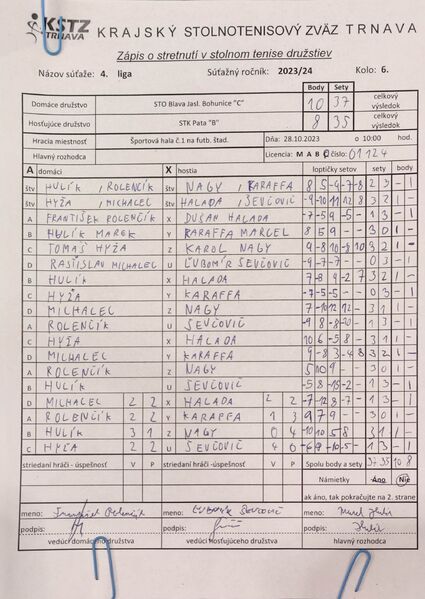 KSTZ TRNAVA KRAJSKÝ STOLNOTENISOVÝ ZVÄZ TRNAVA
Zápis o stretnutí v stolnom tenise družstiev
Názov súťaže: 4. liga Súťažný ročník: 2023/24 Kolo: 6.
Body Sety
Domáce družstvo STO Blava Jasl. Bohunice "C" 10 37 celkový výsledok
Hosťujúce družstvo STK Pata "B" 8 35 celkový výsledok
Hracia miestnosť Športová hala č.1 na futb. štad. Dňa: 28.10.2023 o 10:00 hod.
Hlavný rozhodca Licencia: M A B C číslo: 01124
A domáci X hostia loptičky setov sety body
štv HULÍK, ROLENČÍK štv NAGY, KARAFFA 8 5 -9 -7 -8 2 3 - 1
štv HYŽA, MICHALEC štv HALADA, ŠEVČOVIČ -9 -10 11 12 8 3 2 1 -
A FRANTIŠEK ROLENČÍK X DUŠAN HALADA -7 -5 9 -5 - 1 3 - 1
B HULÍK MAREK Y KARAFFA MARCEL 8 5 9 - - 3 0 1 -
C TOMAŠ HYŽA Z KAROL NAGY 3 2 1 -
D RASTISLAV MICHALEC U ĽUBOMÍR ŠEVČOVIČ -9 -7 -7 - - 0 3 - 1
B HULÍK X HALADA 3 2 1 -
C HYŽA Y KARAFFA -7 -5 -5 - - 0 3 - 1
D MICHALEC Z NAGY 7 -10 12 12 - 3 1 1 -
A ROLENČÍK U ŠEVČOVIČ 1 3 - 1
C HYŽA X HALADA 10 6 -5 8 - 3 1 1 -
D MICHALEC Y KARAFFA 3 2 1 -
A ROLENČÍK Z NAGY 5 10 9 - - 3 0 1 -
B HULÍK U ŠEVČOVIČ 1 3 - 1
D MICHALEC 2 2 X HALADA 2 2 -7 -12 8 -7 - 1 3 - 1
A ROLENČÍK 2 2 Y KARAFFA 1 3 9 7 9 - - 3 0 1 -
B HULÍK 3 1 Z NAGY 0 4 -10 10 5 8 3 1 1 -
C HYŽA 2 2 U ŠEVČOVIČ 4 0 -6 -9 10 -5 - 1 3 - 1
striedaní hráči - úspešnosť V P striedaní hráči - úspešnosť V P Spolu body a sety 37 35 10 8
Námietky Áno Nie
ak áno, tak pokračujte na 2. strane
meno: František Rolenčík meno: Ľubomír Ševčovič meno: Marek Hulík
podpis: podpis: podpis: Hulík
vedúci domáceho družstva vedúci hosťujúceho družstva hlavný rozhodca